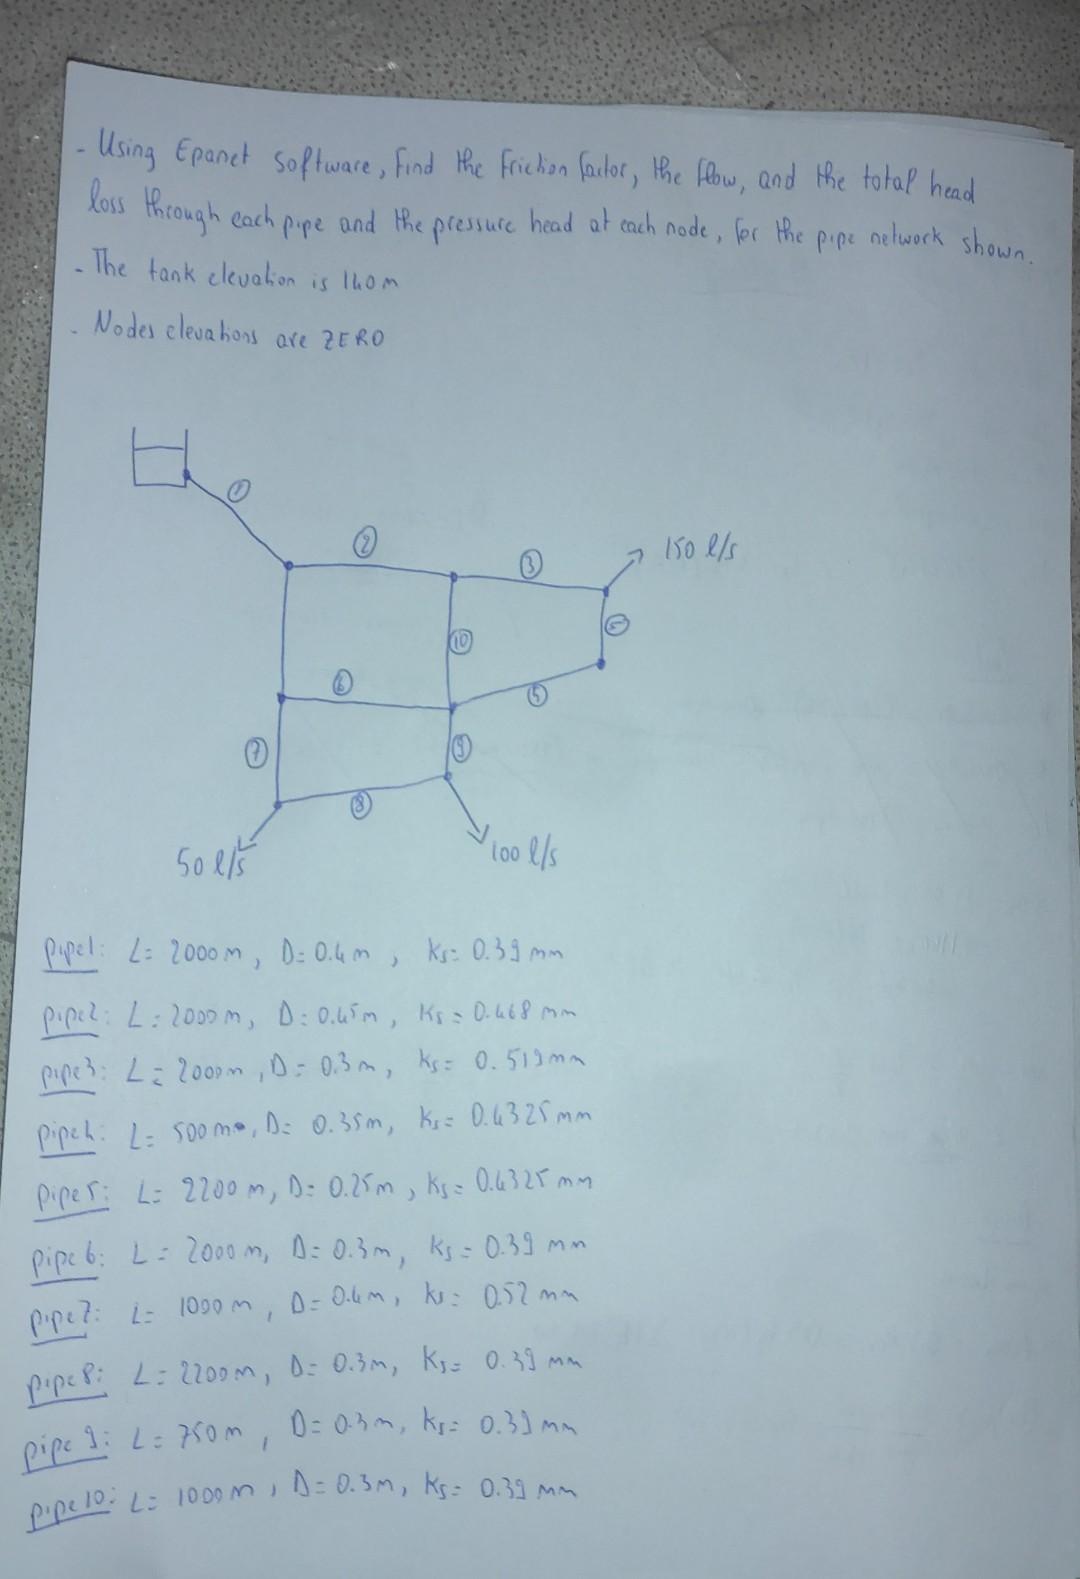 - Using Epanet software, Find the friction factor, the flow, and the total head
loss through each pipe and the pressure head at each node, for the pipe network shown.
- The tank elevation is 140m
- Nodes elevations are ZERO
1
2
3
150 l/s
10
6
5
7
9
8
50 l/s
100 l/s
pipe1: L= 2000m, D= 0.4m, Ks= 0.39 mm
pipe2: L= 2000m, D= 0.45m, Ks= 0.468 mm
pipe3: L= 2000m, D= 0.3m, Ks= 0.519mm
pipe4: L= 500m, D= 0.35m, Ks= 0.4325mm
pipe5: L= 2200m, D= 0.25m, Ks= 0.4325 mm
pipe6: L= 2000m, D= 0.3m, Ks= 0.39 mm
pipe7: L= 1000m, D= 0.4m, Ks= 0.52 mm
pipe8: L= 2200m, D= 0.3m, Ks= 0.39 mm
pipe9: L= 750m, D= 0.3m, Ks= 0.39 mm
pipe10: L= 1000m, D= 0.3m, Ks= 0.39 mm